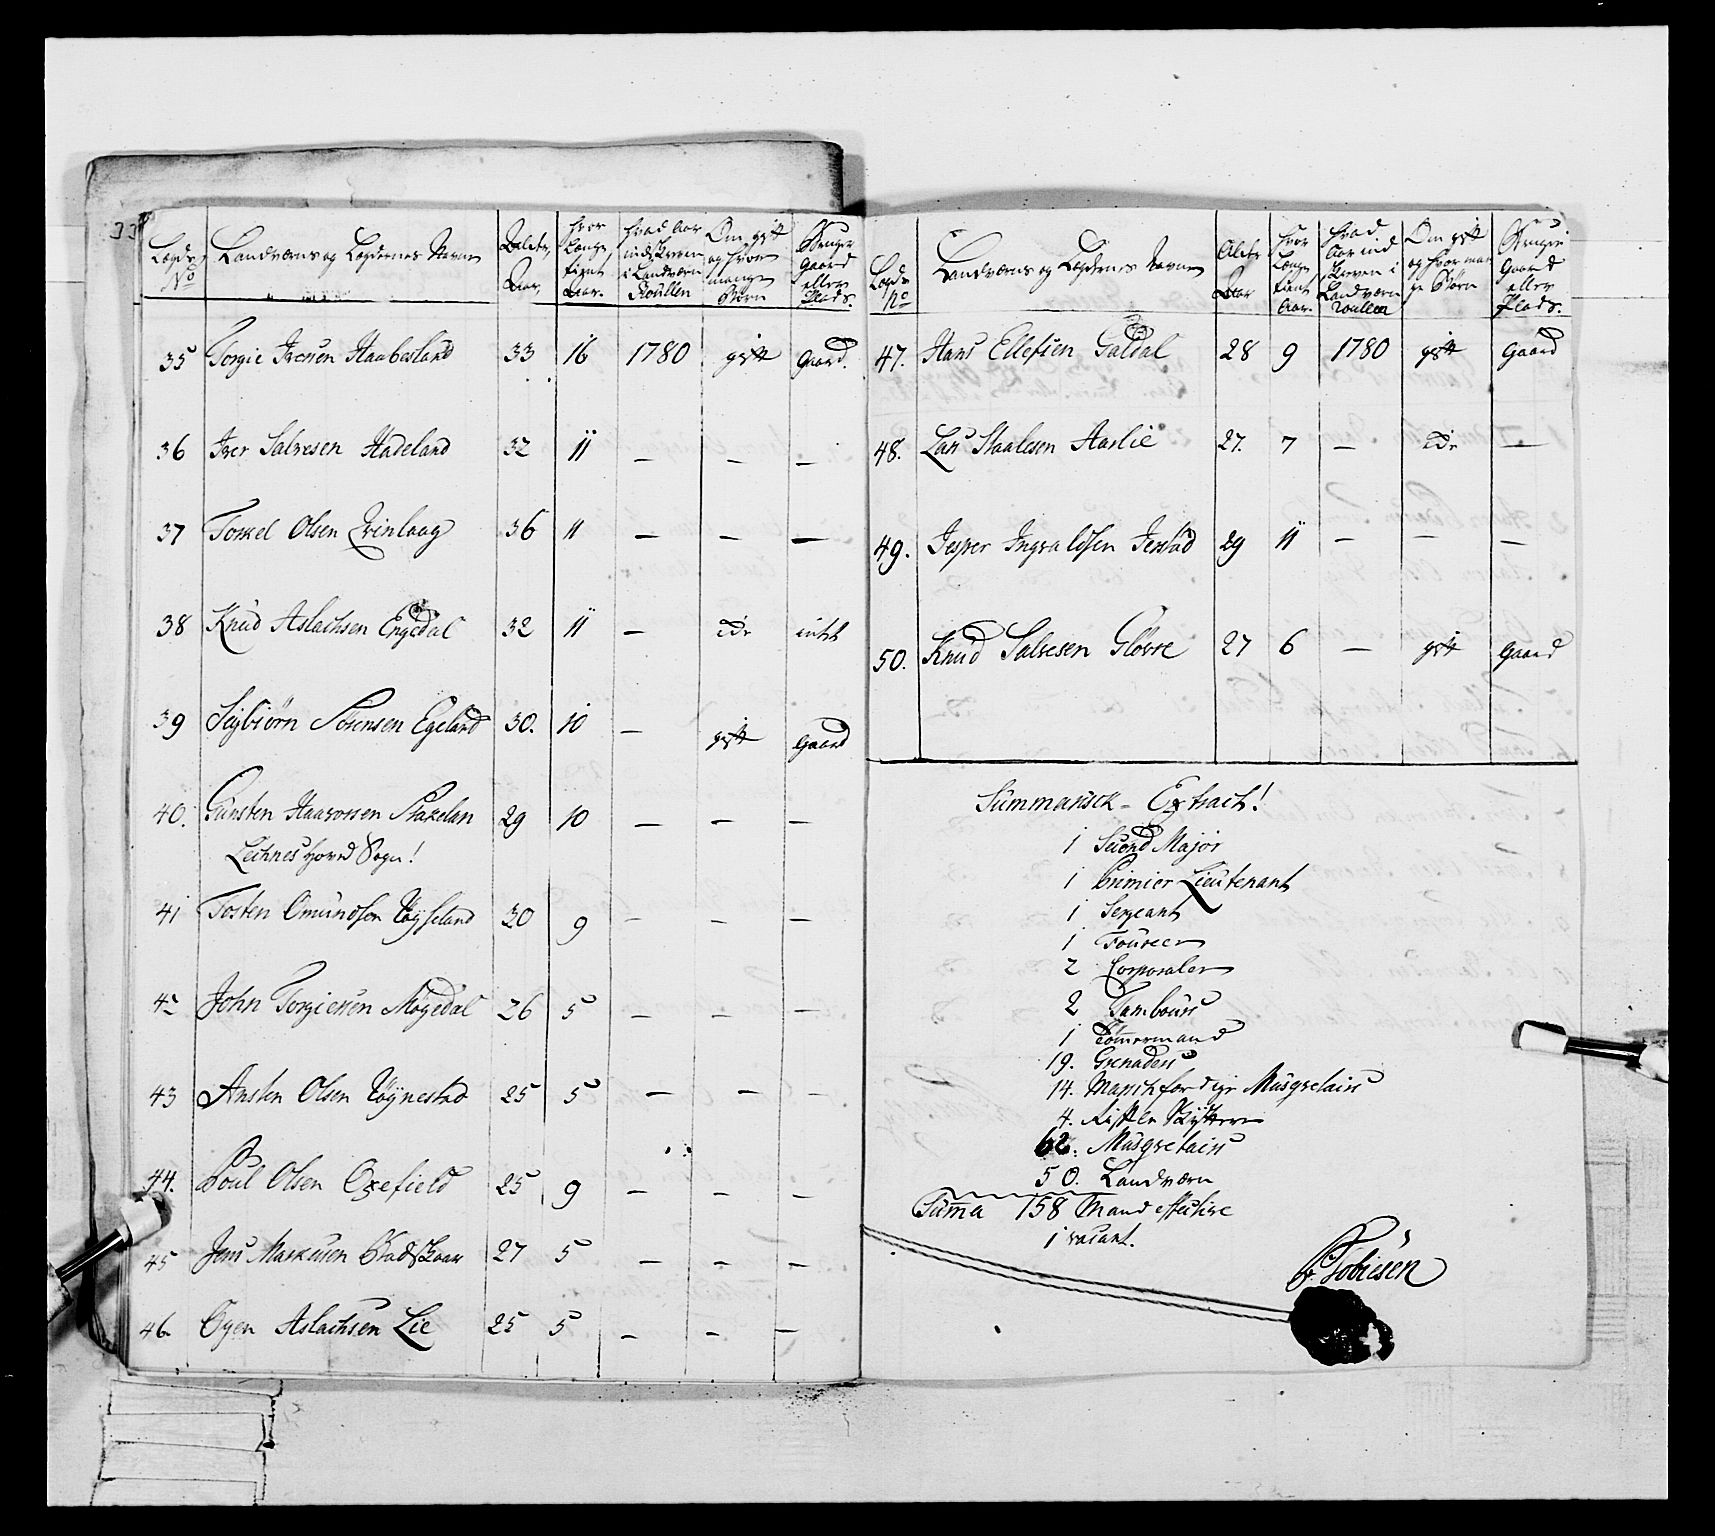 33
Legds No
Landværns og Legdernes Navne
Alder, Aar,
hvor Længe tient Aar.
hvad Aar indskreven i Landværn Roullen
Om gift og hvor mange Børn
Bruger Gaard eller Plads.
35 Torgie Iversen Haabesland 33 16 1780 gift Gaard.
36 Iver Salvesen Hadeland 32 11 — — —
37 Torkel Olsen Qvinlaag 36 11 — — —
38 Knud Aslachsen Engedal 32 11 — Do intet
39 Seybiørn Sørensen Egeland 30. 10 — gift Gaard
40. Gunsten Haavorsen Stakelan 29 10 — — —
Lechnes Hovd Sogn!
41 Tosten Omundsen Røyseland 30 9 — — —
42 John Torgiersen Møgedal 26 5 — — —
43 Ansten Olsen Røynestad 25 5 — — —
44. Poul Olsen Oxefield 25 9 — — —
45 Jens Markusen Stadskaar 27 5 — — —
46. Ogen Aslachsen Lie 25 5 — — —
Legds No
Landværns og Legdernes Navne
Alder Aar
hvor Længe tient Aar.
hvad Aar indskreven i Landværn Roullen
Om gift og hvor mange Børn
Bruger Gaard eller Plads.
47. Hans Ellefsen Galdal 28 9 1780 gift Gaard
48. Lars Staalesen Aarlie 27. 7 — Do —
49. Jesper Ingvaldsen Jerstad 29 11 — — —
50. Knud Salvesen Gløvre 27 6 — gift Gaard
Summarisck - Extract!
1 Second Major
1 Premier Lieutenant
1 Sergeant
1 Foureer
2 Corporaler
2 Tambours
1 Tømermand
19. Grenaders
14. Marschfærdige Musqvetairs
4. Riffle Skyttere
62. Musqvetairs
50. Landværn
Suma 158 Mand effective
1 vacant.
Tobiesen